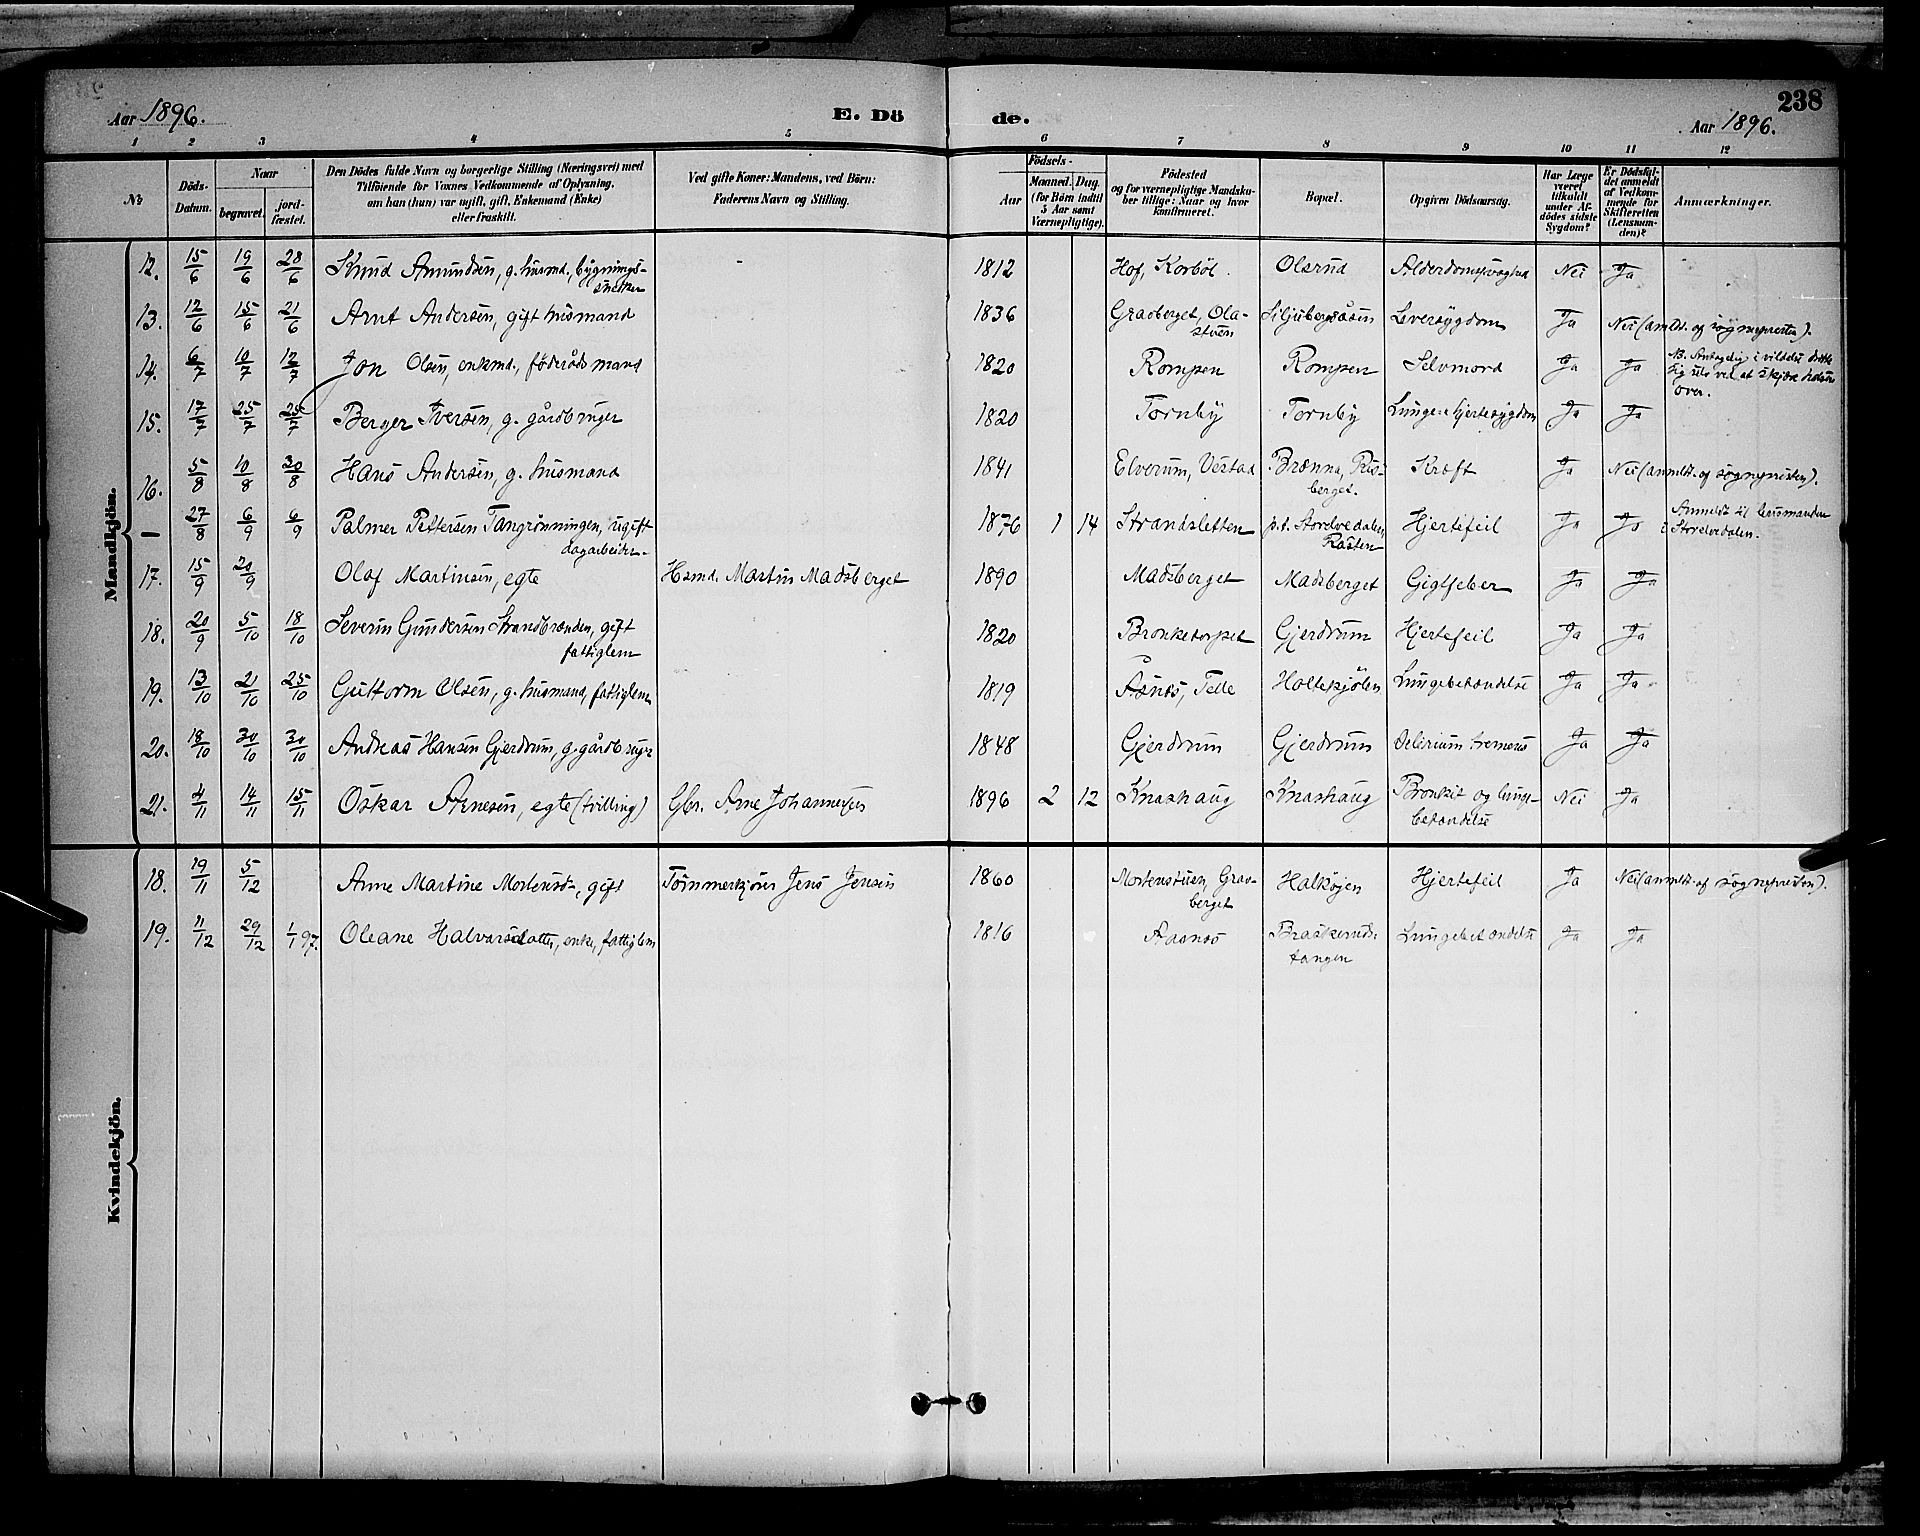 238
Aar 1896.
E. Dö
de.
Aar 1896.
1 2 3 4 5 6 7 8 9 10 11 12
№
Döds-Datum.
Naar
begravet.
jord-fæstet.
Den Dödes fulde Navn og borgerlige Stilling (Næringsvei) med
Tilföiende for Voxnes Vedkommende af Oplysning,
om han (hun) var ugift, gift, Enkemand (Enke)
eller fraskilt.
Ved gifte Koner: Mandens, ved Börn:
Faderens Navn og Stilling.
Födsels-
Aar
Maaned. Dag.
(for Börn indtil
5 Aar samt
Værnepligtige).
Födested
og for værnepligtige Mandska-
ber tillige: Naar og hvor
konfirmeret.
Bopæl.
Opgiven Dödsaarsag.
Har Læge
været
tilkaldt
under Af-
dödes sidste
Sygdom?
Er Dödsfal-
det anmeldt
af Vedkom-
mende for
Skifteretten
(Lensman-
den)?
Anmærkninger.
Mandkjön.
12. 15/6 19/6 28/6 Knud Amundsen, g. husmd., bygnings-snekker 1812 Hof, Korböl. Olsrud Alderdomssvaghed Nei Ja
13. 12/6 15/6 21/6 Arnt Andersen, gift husmand 1836 Gravberget, Ola-stuen Siljubergsåsen Leversygdom Ja Nei (amldt. af sognepresten).
14. 6/7 10/7 12/7 Jon Olsen, enkmd., föderådsmand 1820 Rompen Rompen Selvmord Ja Ja NB. Antagelig i vildelse dræbte sig selv ved at skjære halsen over.
15. 17/7 25/7 25/7 Berger Iversen, g. gårdbruger 1820 Tornby Tornby Lunge- hjertesygdom Ja Ja
16. 5/8 10/8 30/8 Hans Andersen, g. husmand 1841 Elverum, Vestad Brænna, Risberget. Kræft Ja Nei (anmeldt. af sognepresten).
— 27/8 6/9 6/9 Palmer Pettersen Tangrönningen, ugift dagarbeider. 1876 1 14 Strandsletten p.t. Storelvedalen, Rasten Hjertefeil Ja Ja Anmeldt til lensmanden i Storelvedalen.
17. 15/9 20/9 Olaf Martinsen, egte Hsmd. Martin Madsberget 1890 Madsberget Madsberget Gigtfeber Ja Ja
18. 20/9 5/10 18/10 Severin Gundersen Strandbrænden, gift fattiglem 1820 Bronketorpet Gjerdrum Hjertefeil Ja Ja
19. 13/10 21/10 25/10 Guttorm Olsen, g. husmand, fattiglem 1819 Åsnes, Telle Holtekjölen Lungebetændelse Ja Ja
20. 18/10 30/10 30/10 Andreas Hansen Gjerdrum, g. gårdbruger 1848 Gjerdrum Gjerdrum Delirium tremens Ja Ja
21. 4/11 14/11 15/11 Oskar Arnesen, egte (tvilling) Gbr. Arne Johannesen 1896 2 12 Knashaug Knashaug Bronkit og lunge-betændelse Nei Ja
Kvindekjön.
18. 19/11 5/12 Anne Martine Mortensd., gift Tömmerkjörer Jens Jensen 1860 Mortenstuen, Grav-berget Halköjen Hjertefeil Ja Nei (anmldt. af sognepresten).
19. 11/12 29/12 1/1 97. Oleane Halvorsdatter, enke, fattiglem 1816 Aasnes Braskerud-tangen Lungebetændelse Ja Ja